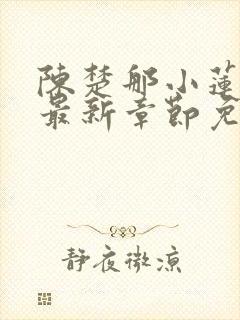 陳楚那小蓮
最新章節免
靜夜微涼